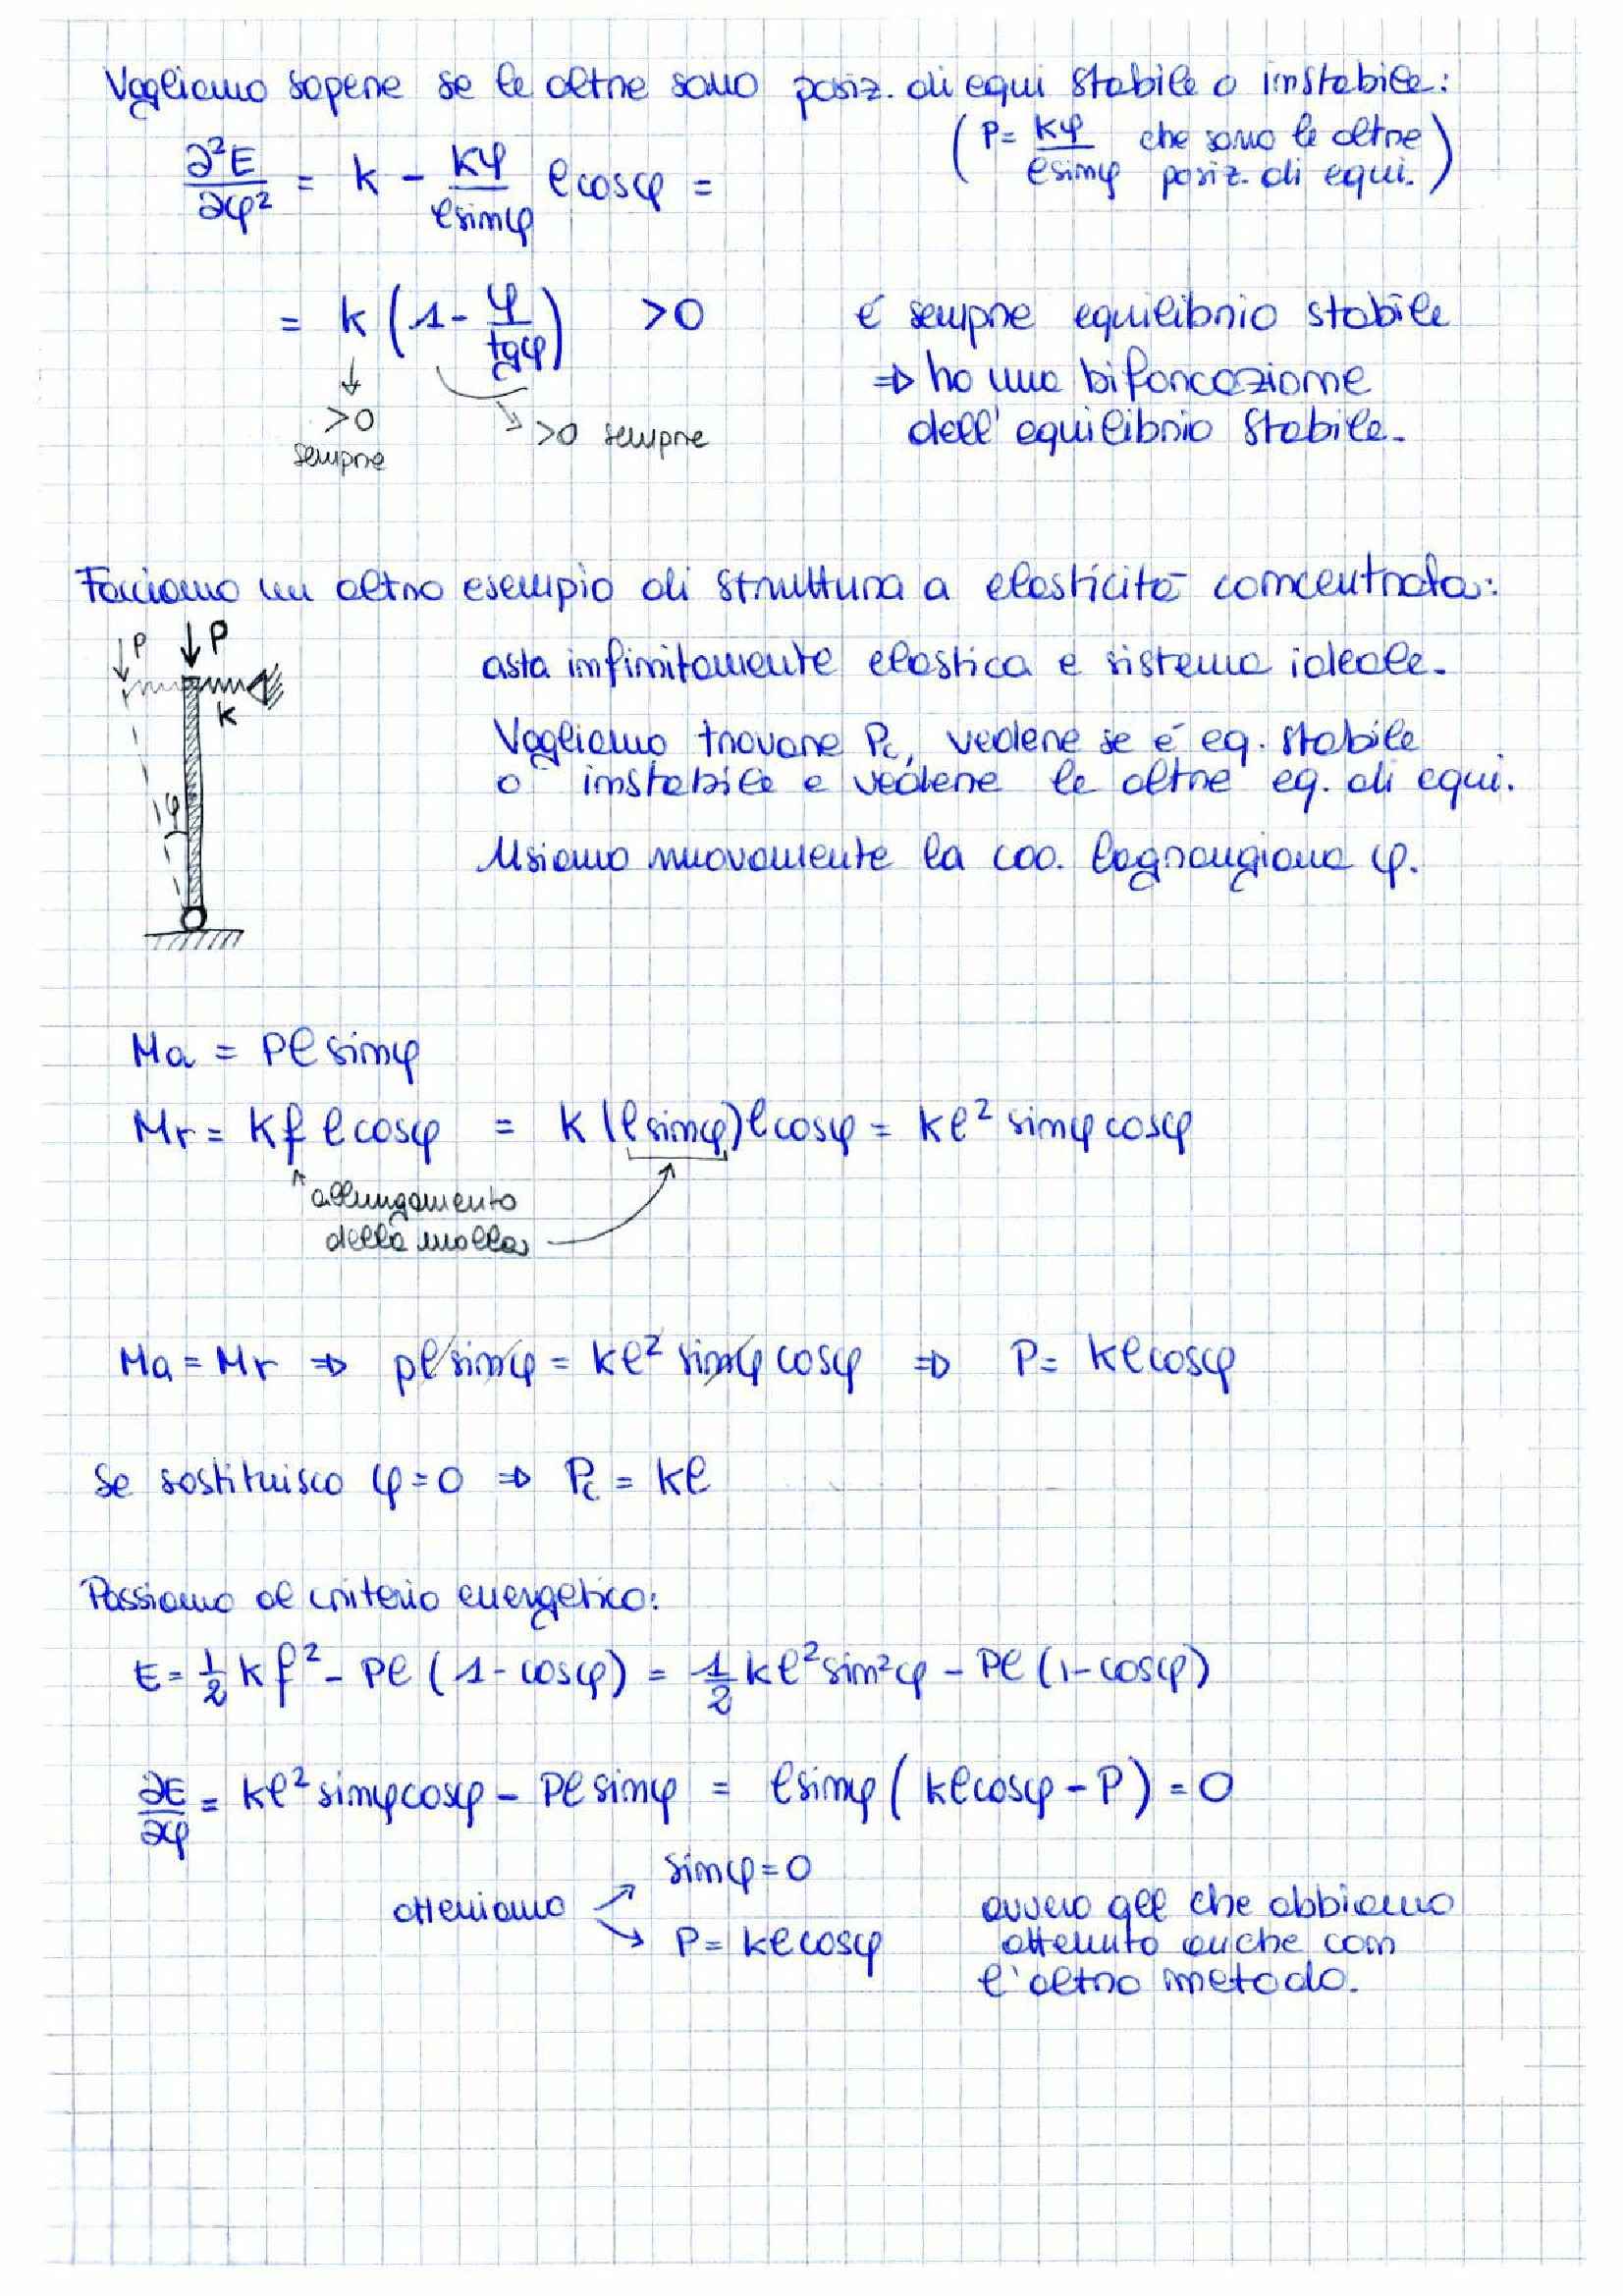 Vogliamo sapere se le altre sono posiz. di equi stabile o instabile:
∂²E/∂φ² = k - kφ/(ℓsinφ) ℓcosφ =
(P = kφ/(ℓsinφ) che sono le altre posiz. di equi.)
= k (1 - φ/tgφ) > 0
é sempre equilibrio stabile
⇒ ho una biforcazione
dell'equilibrio stabile.
>0
sempre
>0 sempre
Facciamo un altro esempio di struttura a elasticità concentrata:
P P
k
φ
asta infinitamente elastica e sistema ideale.
Vogliamo trovare Pc, vedere se é eq. stabile
o instabile e vedere le altre eq. di equi.
Usiamo nuovamente la coo. lagrangiana φ.
Ma = Pℓ sinφ
Mr = k f ℓ cosφ = k (ℓ sinφ) ℓ cosφ = kℓ² sinφ cosφ
allungamento
della molla
Ma = Mr ⇒ pℓ sinφ = kℓ² sinφ cosφ ⇒ P = kℓcosφ
Se sostituisco φ = 0 ⇒ Pc = kℓ
Passiamo al criterio energetico:
E = 1/2 k f² - Pℓ (1 - cosφ) = 1/2 kℓ² sin²φ - Pℓ (1 - cosφ)
∂E/∂φ = kℓ² sinφ cosφ - Pℓ sinφ = ℓ sinφ (kℓcosφ - P) = 0
otteniamo
sinφ = 0
P = kℓcosφ
ovvero qll che abbiamo
ottenuto anche con
l'altro metodo.